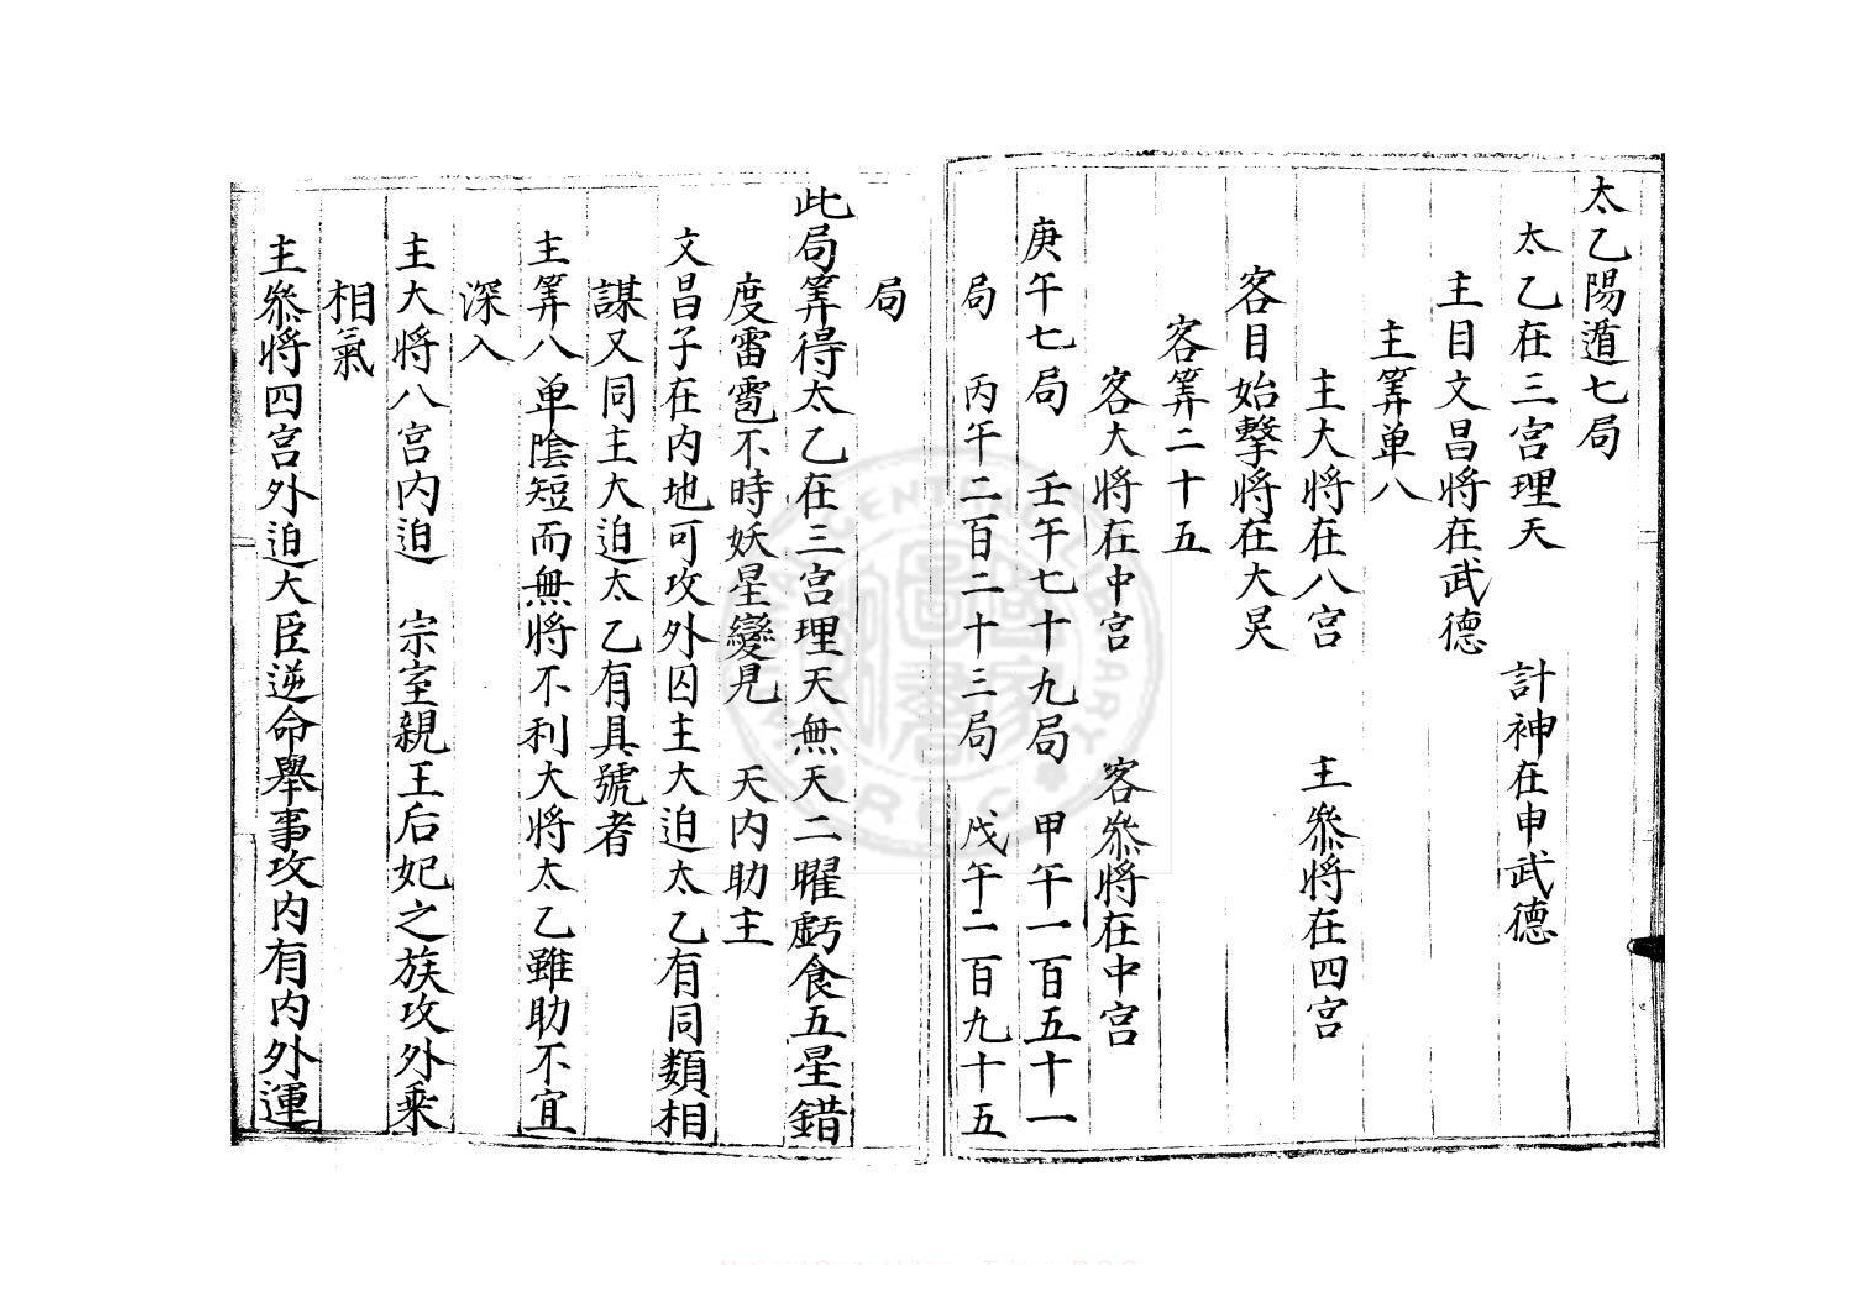 太乙陽遁七局
太乙在三宮理天　計神在申武德
主目文昌將在武德
主筭单八
主大將在八宮　主叅將在四宮
客目始擊將在大炅
客筭二十五
客大將在中宮　客叅將在中宮
庚午七局　壬午七十九局　甲午一百五十一
局　丙午二百二十三局　戊午二百九十五
局
此局筭得太乙在三宮理天無天二曜虧食五星錯
度雷雹不時妖星變見　天内助主
文昌子在内地可攻外囚主大迫太乙有同類相
謀又同主大迫太乙有具號者
主筭八单陰短而無將不利大將太乙雖助不宜
深入
主大將八宮内迫　宗室親王后妃之族攻外乘
相氣
主叅將四宮外迫大臣逆命舉事攻内有内外運